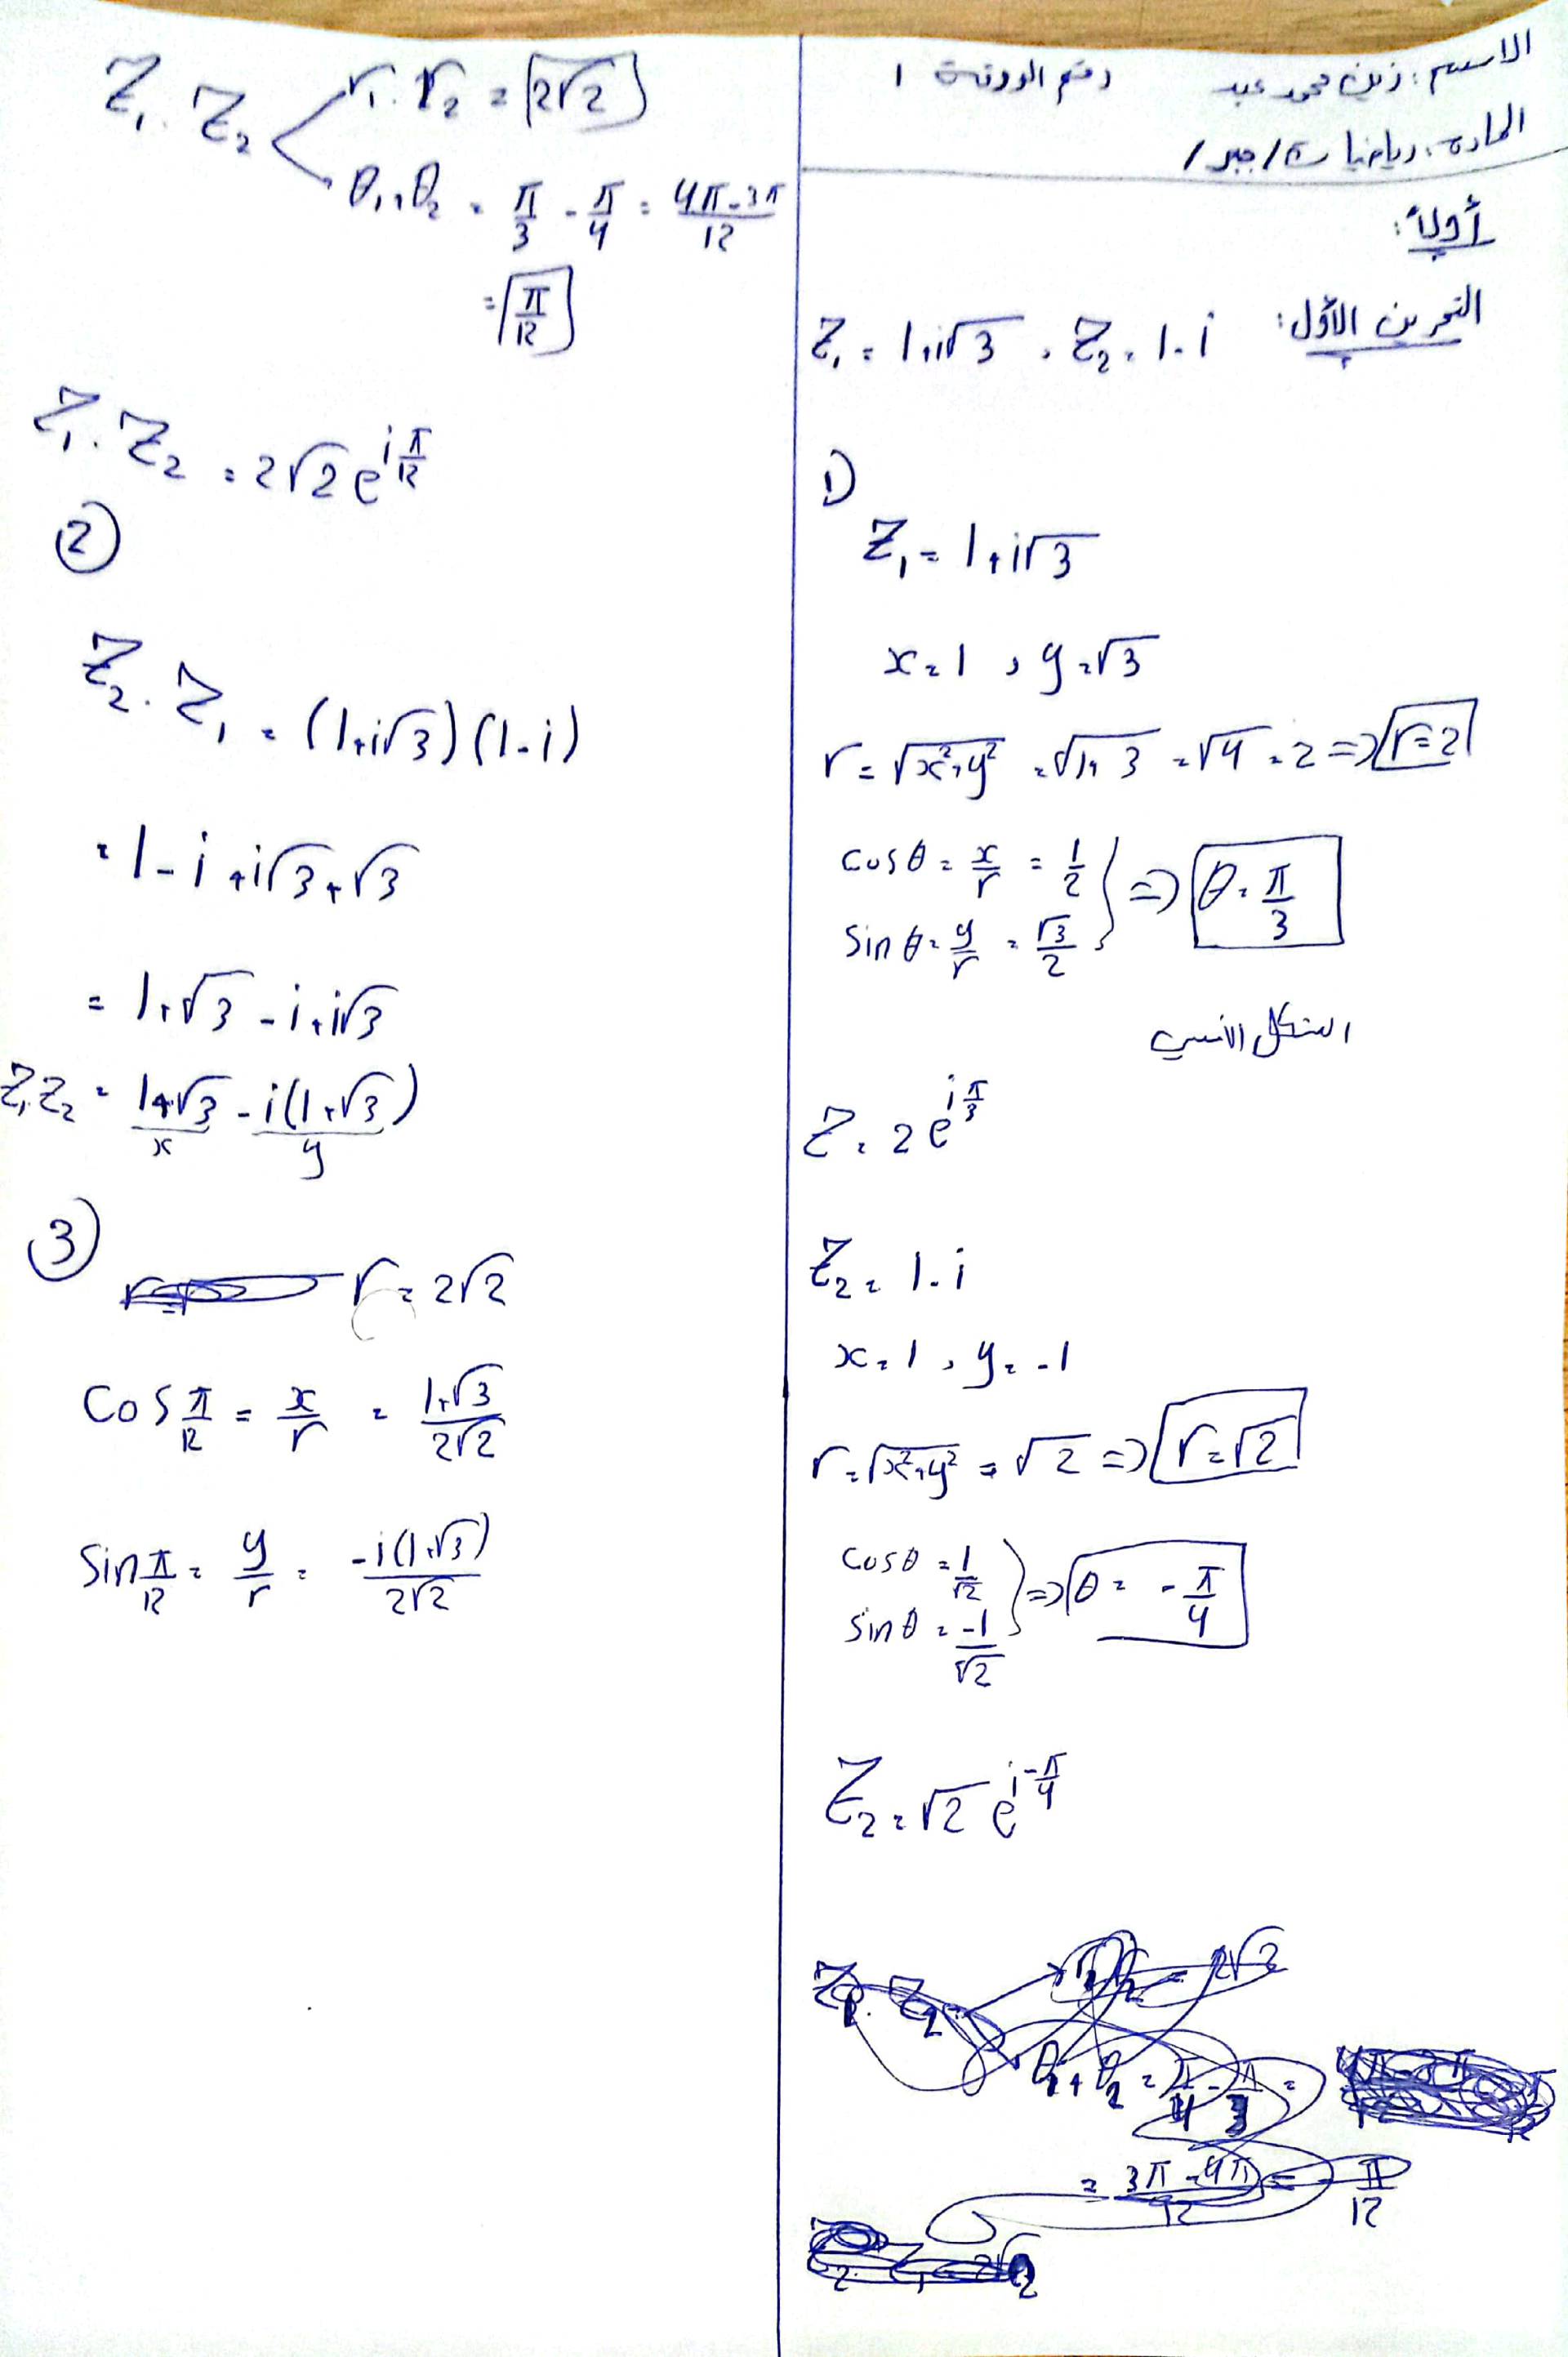 الاسم: زين محمد عبد رقم الورقة 1
المادة: رياضيات /جبر/
أولاً:
التمرين الأول: Z₁ = 1+i√3 , Z₂ = 1-i
1)
Z₁ = 1+i√3
x=1 , y=√3
r = √x²+y² = √1+3 = √4 = 2 => r=2
cosθ = x/r = 1/2
sinθ = y/r = √3/2 } => θ = π/3
الشكل الأسي
Z = 2e^{iπ/3}
Z₂ = 1-i
x=1 , y=-1
r = √x²+y² = √2 => r=√2
cosθ = 1/√2
sinθ = -1/√2 } => θ = -π/4
Z₂ = √2 e^{i-π/4}
Z₁.Z₂ = r₁r₂ = 2√2
θ₁+θ₂ = π/4 - π/3 =
= 3π-4π/12 = -π/12
Z₁.Z₂ r₁.r₂ = 2√2
θ₁+θ₂ = π/3 - π/4 = 4π-3π/12
= π/12
Z₁.Z₂ = 2√2 e^{iπ/12}
2
Z₂.Z₁ = (1+i√3)(1-i)
= 1-i+i√3+√3
= 1+√3-i+i√3
Z₁Z₂ = 1+√3 - i(1+√3)
x y
3
r = 2√2
Cos π/12 = x/r = 1+√3/2√2
Sin π/12 = y/r = -i(1+√3)/2√2